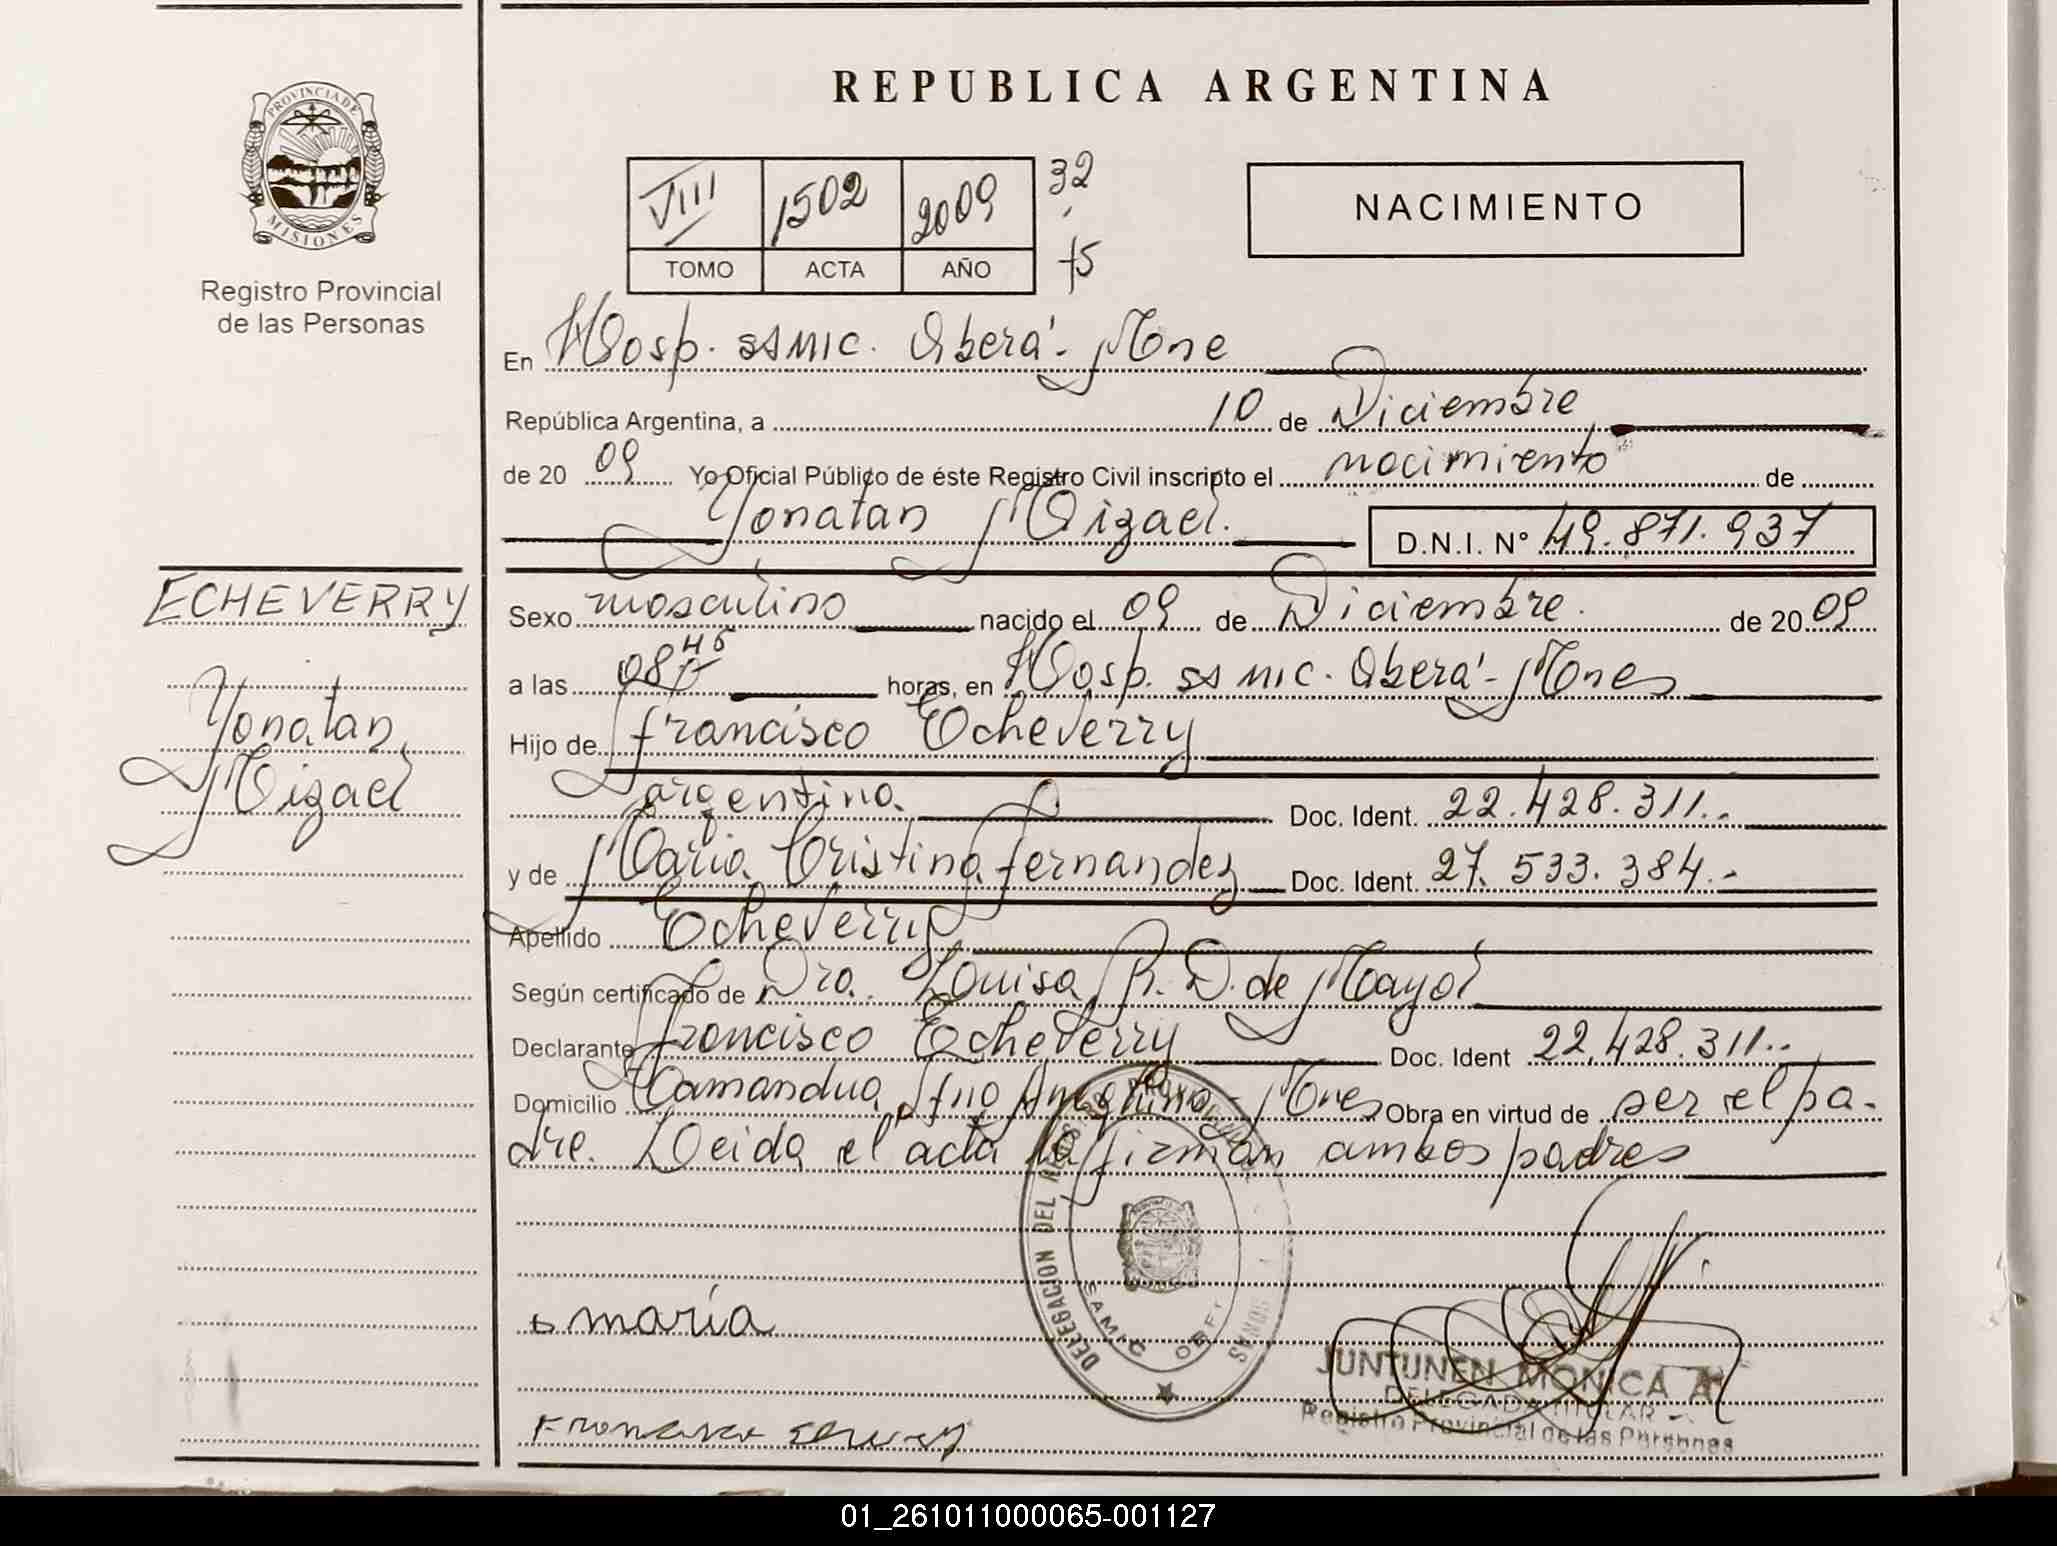 REPUBLICA ARGENTINA
PROVINCIA DE
MISIONES
Registro Provincial
de las Personas
VIII 1502 2009 32
TOMO ACTA AÑO 75
NACIMIENTO
En Hosp. SAMIC. Oberá - Mnes
República Argentina, a 10 de Diciembre
de 20 09 Yo Oficial Público de éste Registro Civil inscripto el nacimiento de
Yonatan Mizael. D.N.I. N° 49.871.937
ECHEVERRY
Yonatan
Mizael
Sexo masculino nacido el 09 de Diciembre. de 20 09
a las 08 45 horas, en Hosp. SAMIC. Oberá - Mnes
Hijo de Francisco Echeverry
argentino. Doc. Ident. 22.428.311.-
y de Maria Cristina Fernandez Doc. Ident. 27.533.384.-
Apellido Echeverry
Según certificado de Dra. Louisa R. D. de Mayol
Declarante Francisco Echeverry Doc. Ident 22.428.311.-
Domicilio Tamandua - Mnes Obra en virtud de ser el pa-
dre. Leida el acta la firman ambos padres
DELEGACION DEL
SAMIC
maría
JUNTUNEN MONICA A
DELEGADA TITULAR
Registro Provincial de las Personas
01_261011000065-001127